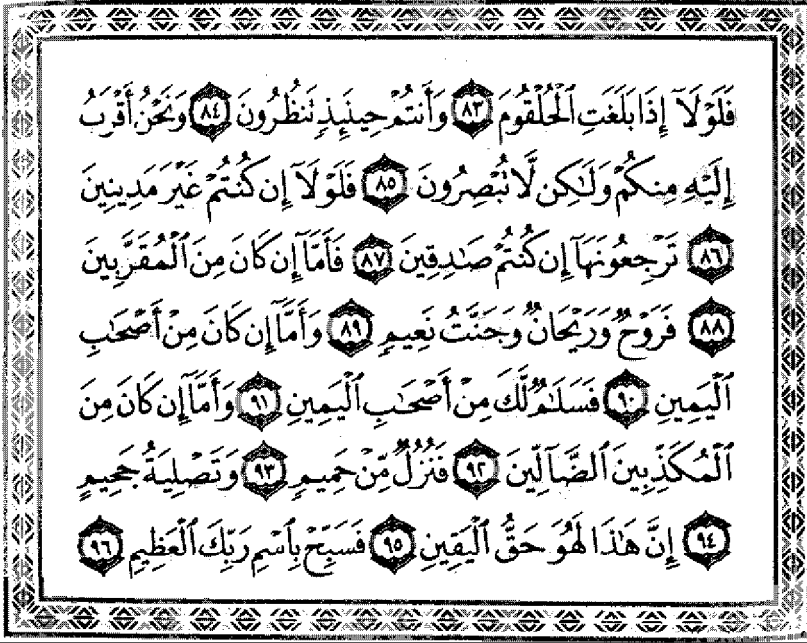 فَلَوْلَآ إِذَا بَلَغَتِ ٱلْحُلْقُومَ ٨٣ وَأَنتُمْ حِينَئِذٍ تَنظُرُونَ ٨٤ وَنَحْنُ أَقْرَبُ
إِلَيْهِ مِنكُمْ وَلَٰكِن لَّا تُبْصِرُونَ ٨٥ فَلَوْلَآ إِن كُنتُمْ غَيْرَ مَدِينِينَ
٨٦ تَرْجِعُونَهَآ إِن كُنتُمْ صَٰدِقِينَ ٨٧ فَأَمَّآ إِن كَانَ مِنَ ٱلْمُقَرَّبِينَ
٨٨ فَرَوْحٌ وَرَيْحَانٌ وَجَنَّتُ نَعِيمٍ ٨٩ وَأَمَّآ إِن كَانَ مِنْ أَصْحَٰبِ
ٱلْيَمِينِ ٩٠ فَسَلَٰمٌ لَّكَ مِنْ أَصْحَٰبِ ٱلْيَمِينِ ٩١ وَأَمَّآ إِن كَانَ مِنَ
ٱلْمُكَذِّبِينَ ٱلضَّآلِّينَ ٩٢ فَنُزُلٌ مِّنْ حَمِيمٍ ٩٣ وَتَصْلِيَةُ جَحِيمٍ
٩٤ إِنَّ هَٰذَا لَهُوَ حَقُّ ٱلْيَقِينِ ٩٥ فَسَبِّحْ بِٱسْمِ رَبِّكَ ٱلْعَظِيمِ ٩٦